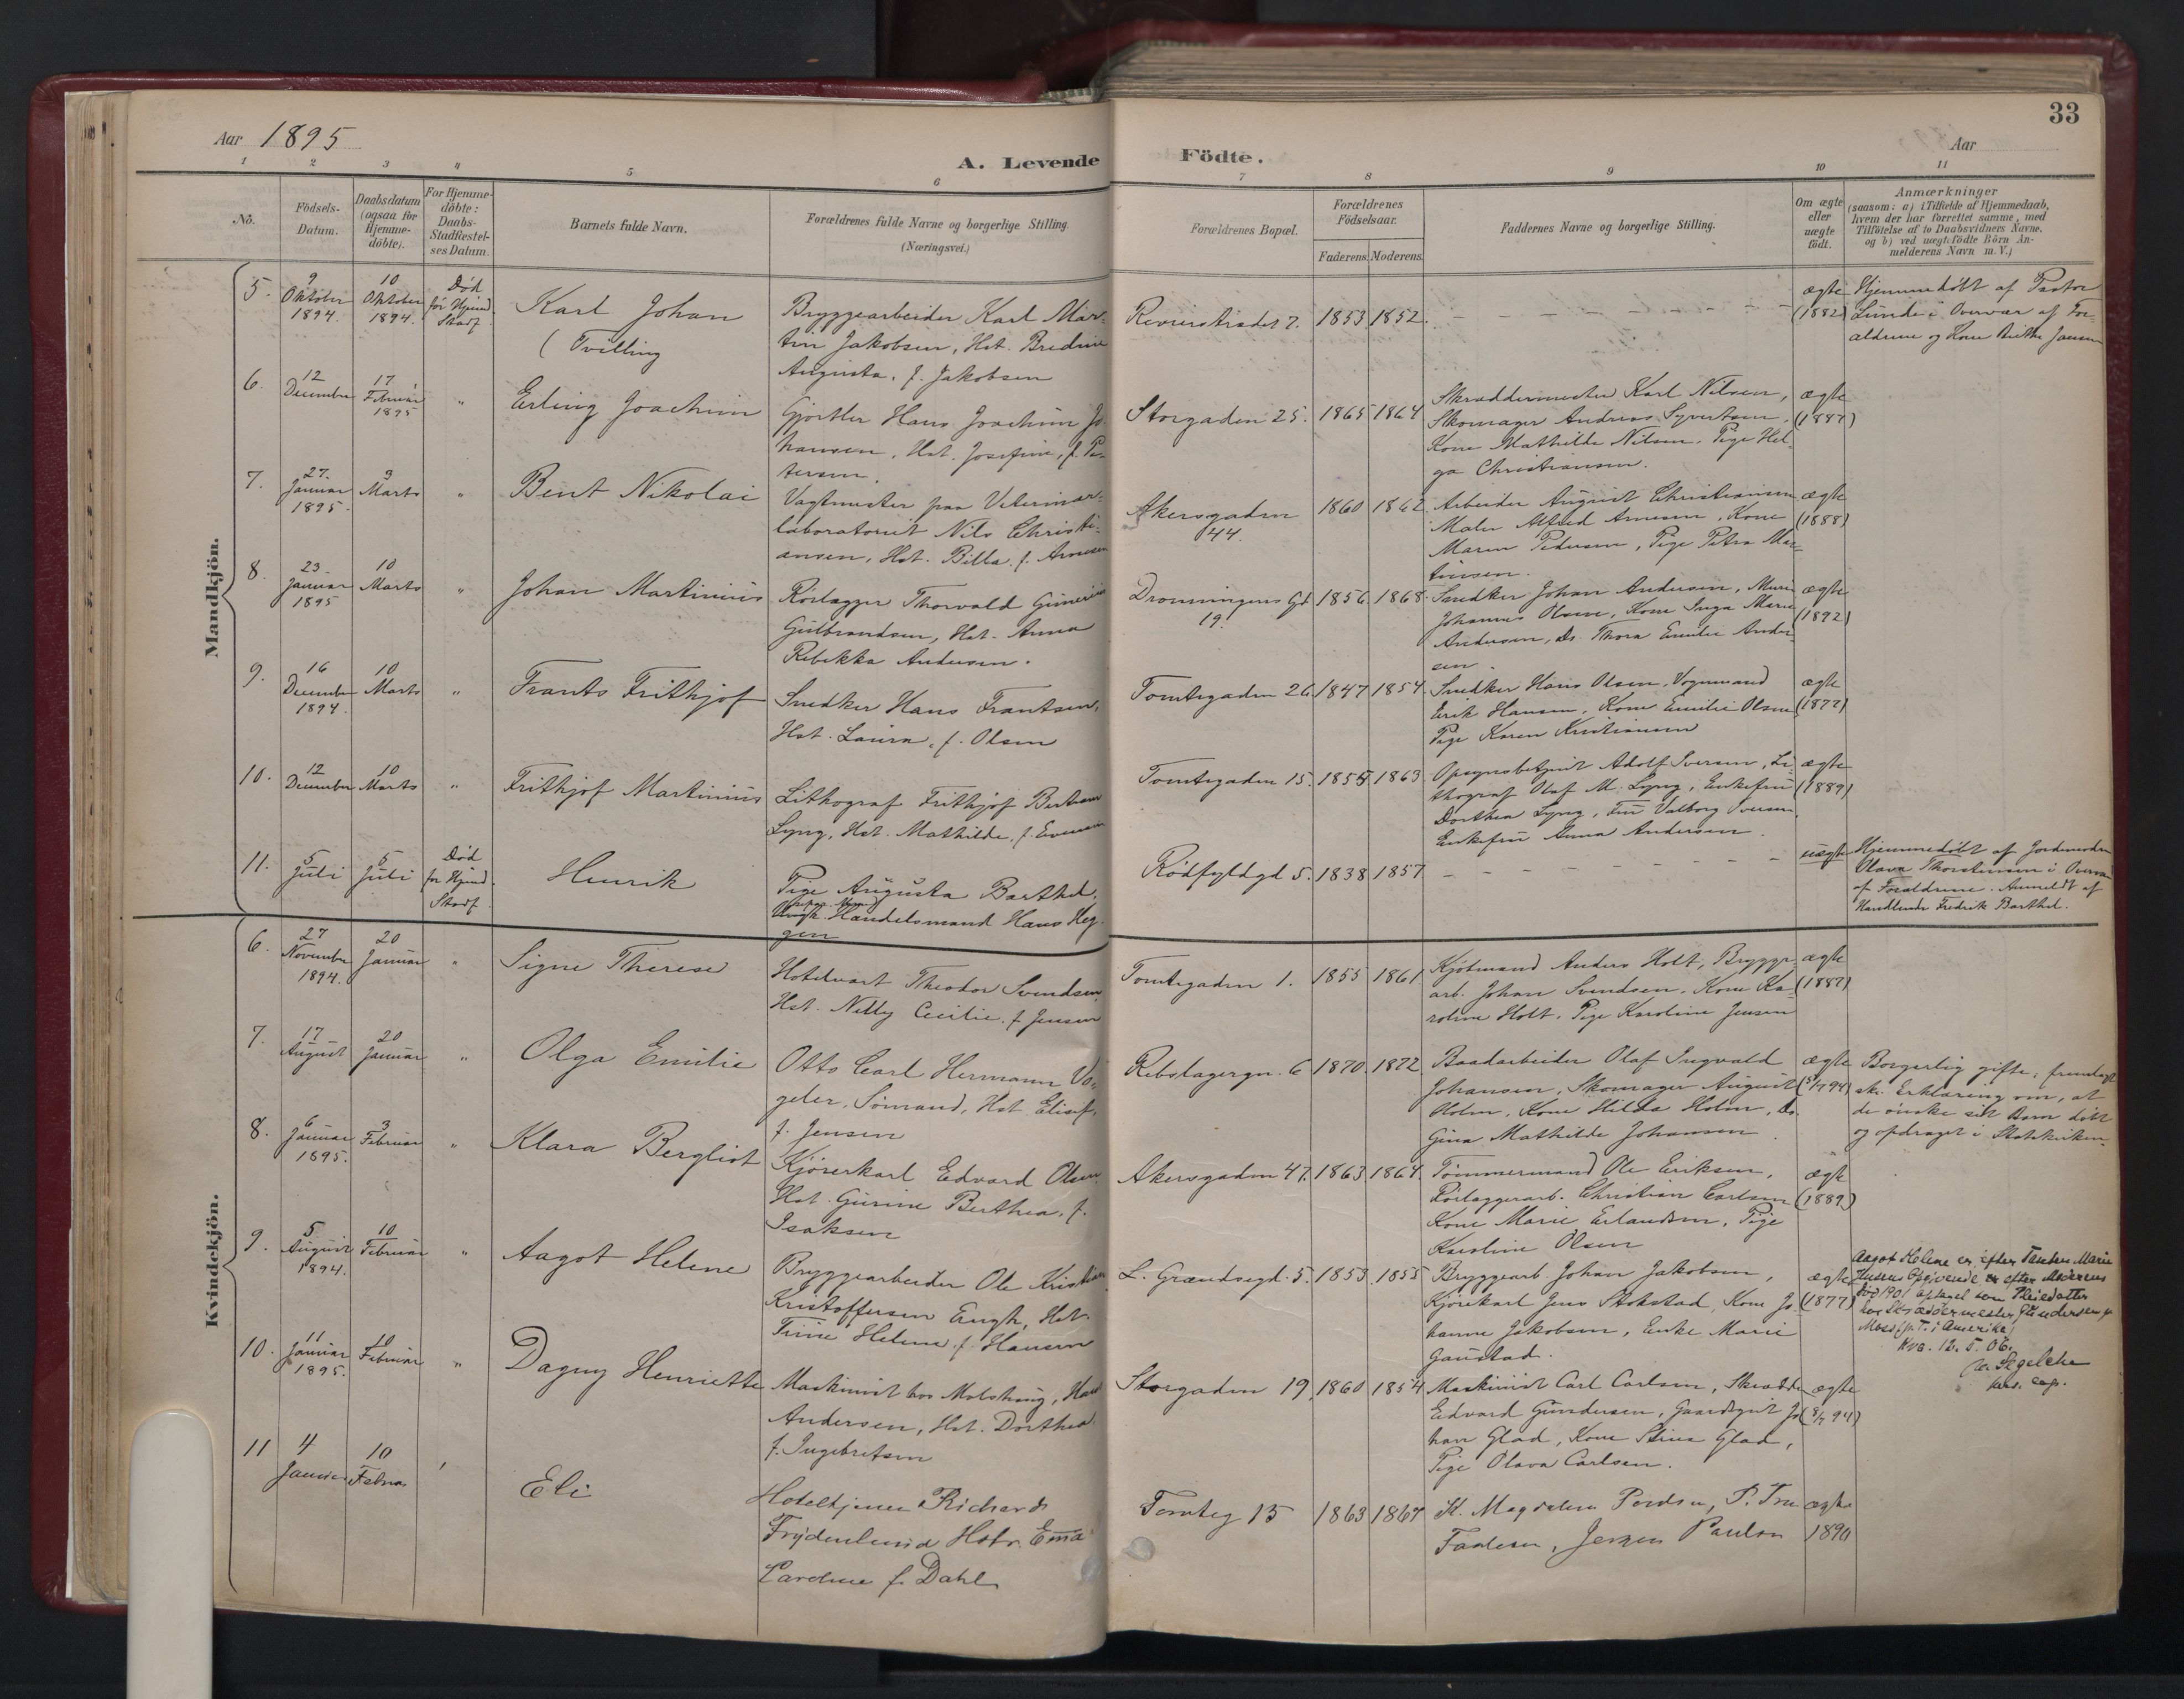 Aar 1895
A. Levende
Födte.
Aar
33
1 2 3 4 5 6 7 8 9 10 11
Nö.
Födsels-
Datum.
Daabsdatum
(ogsaa for
Hjemme-
döbte).
For Hjemme-
döbte:
Daabs-
Stadfæstel-
ses Datum.
Barnets fulde Navn.
Forældrenes fulde Navne og borgerlige Stilling.
(Næringsvei.)
Forældrenes Bopæl.
Forældrenes
Födselsaar.
Faderens. Moderens.
Faddernes Navne og borgerlige Stilling.
Om ægte
eller
uægte
födt.
Anmærkninger
(saasom: a) i Tilfælde af Hjemmedaab,
hvem der har forrettet samme, med
Tilföielse af to Daabsvidners Navne,
og b) ved uægtefödte Börn An-
melderens Navn m.V.)
Mandkjön.
5.
9
Oktober
1894.
10
Oktober
1894.
Død
før Hjemd.
Stadf.
Karl Johan
(Tvilling
Bryggearbeider Karl Mar-
tin Jakobsen, Hst. Bredine
Augusta, f. Jakobsen
Revierstrædet 7. 1853 1852.
ægte
(1882)
Hjemmedøbt af Pastor
Lunde i Overvær af For-
ældrene og Kone Birthe Jansen
6.
12
December
17
Februar
1895
"
Erling Joachim
Gjørtler Hans Joachim Jo-
hansen, Hst. Josefine, f. Pe-
tersen.
Storgaden 25. 1865 1864
Skræddermester Karl Nilsen,
Skomager Andreas Syvertsen,
Kone Mathilde Nilsen, Pige Hel-
ga Christiansen.
ægte
(1887)
7.
27.
Januar
1895.
3
Marts
"
Bent Nikolai
Vagtmester paa Veterinær-
laboratoriet Nils Christi-
ansen, Hst. Billa f. Arnesen
Akersgaden
44.
1860 1862
Arbeider August Christiansen
Maler Alfred Arnesen, Kone
Maren Pedersen, Pige Petra Mar-
tinsen.
ægte
(1888)
8.
23.
Januar
1895
10
Marts
"
Johan Martinius
Rørlægger Thorvald Gunerius
Gulbrandsen, Hst. Anna
Rebekka Andersen.
Dronningens Gd.
19.
1856 1868
Snedker Johan Andersen, Murer
Johannes Olsen, Kone Inga Marie
Andersen, Ds. Thora Emilie Ander
sen.
ægte
(1892)
9.
16
December
1894.
10
Marts
"
Frants Frithjof
Snedker Hans Frantsen,
Hst. Laura, f. Olsen
Tomtegaden 26. 1847 1854
Snedker Hans Olsen, Vognmand
Erik Hansen, Kone Emilie Olsen
Pige Karen Kristiansen
ægte
(1872)
10.
12
December
10
Marts
"
Frithjof Martinius
Lithograf Frithjof Bertram
Lyng, Hst. Mathilde, f. Evensen
Tomtegaden 15. 1855 1863
Opsynsbetjent Adolf Iversen, Li-
thograf Olaf M. Lyng, Enkefru
Dorthea Lyng, Fru Valborg Iversen,
Enkefru Anna Andersen.
ægte
(1889)
11.
5
Juli
5
Juli
Død
før Hjemd.
Stadf.
Henrik
Pige Augusta Barthel,
Handelsmand Hans Heg-
gen
Rødfyldgd 5. 1838 1857
uægte
Hjemmedøbt af Jordmoder
Olava Thorstensen i Overvær
af Forældrene. Anmeldt af
Handlende Fredrik Barthel.
Kvindekjön.
6.
27
November
1894.
20
Januar
"
Signe Therese
Hotelvært Theodor Svendsen,
Hst. Nelly Cecilie, f. Jensen
Tomtegaden 1. 1855 1861
Kjøbmand Anders Holt, Brygge-
arb. Johan Svendsen, Kone Ka-
roline Holt, Pige Karoline Jensen
ægte
(1887)
7.
17
August
20
Januar
"
Olga Emilie
Otto Carl Hermann Vo-
geler, Sømand, Hst. Elisif,
f. Jensen
Rebslagergn. 6 1870 1872
Baadarbeider Olaf Ingvald
Johansen, Skomager August
Holm, Kone Hilda Holm, Ds.
Gina Mathilde Johansen.
ægte
Borgerlig gifte; fremlagt
skr. Erklæring om, at
de ønske sit Barn døbt
og opdraget i Statskirken.
8.
6
Januar
1895.
3
Februar
"
Klara Bergliot
Kjørerkarl Edvard Olsen
Hst. Gurine Berthea, f.
Isaksen
Akersgaden 47. 1863 1864.
Tømmermand Ole Eriksen,
Rørlæggerarb. Christian Carlsen
Kone Marie Erlandsen, Pige
Karoline Olsen
ægte
(1889)
9.
5
August
1894.
10
Februar
"
Aagot Helene
Bryggearbeider Ole Kristian
Kristoffersen Engh, Hst.
Trine Helene, f. Hansen
L. Grændsegd. 5. 1853 1855
Bryggearb. Johan Jakobsen,
Kjørekarl Jens Stokstad, Kone Jo-
hanne Jakobsen, Enke Marie
Gaustad.
ægte
(1877)
Aagot Helene er, efter Tanten Marie
Opgivende efter Moderens
Død 1901 optaget som Pleiedatter
hos Skræddermester Gundersen,
Moss (p. T. i Amerika)
Kra. 12. 5. 06.
Segelcke
res. cap.
10.
11
Januar
1895.
10
Februar
"
Dagny Henriette
Maskinist hos Malstrøng, Hans
Andersen, Hst. Dorthea
f. Ingebretsen
Storgaden 19. 1860 1854
Maskinist Carl Carlsen, Skrædder
Edvard Gundersen, Gaardsgut Jo-
han Glad, Kone Stina Glad,
Pige Olava Carlsen.
ægte
11
4
Januar
10
Februar
Eli
Hoteltjener Richard
Frydenlund Hstr. Ema
Caroline f. Dahl
Tomteg 15 1863 1867
ægte
1890